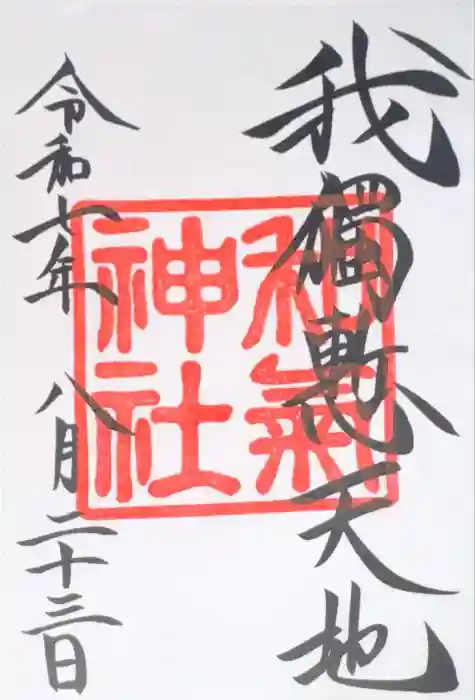 我獨慙天地
和氣神社
令和七年八月二十三日